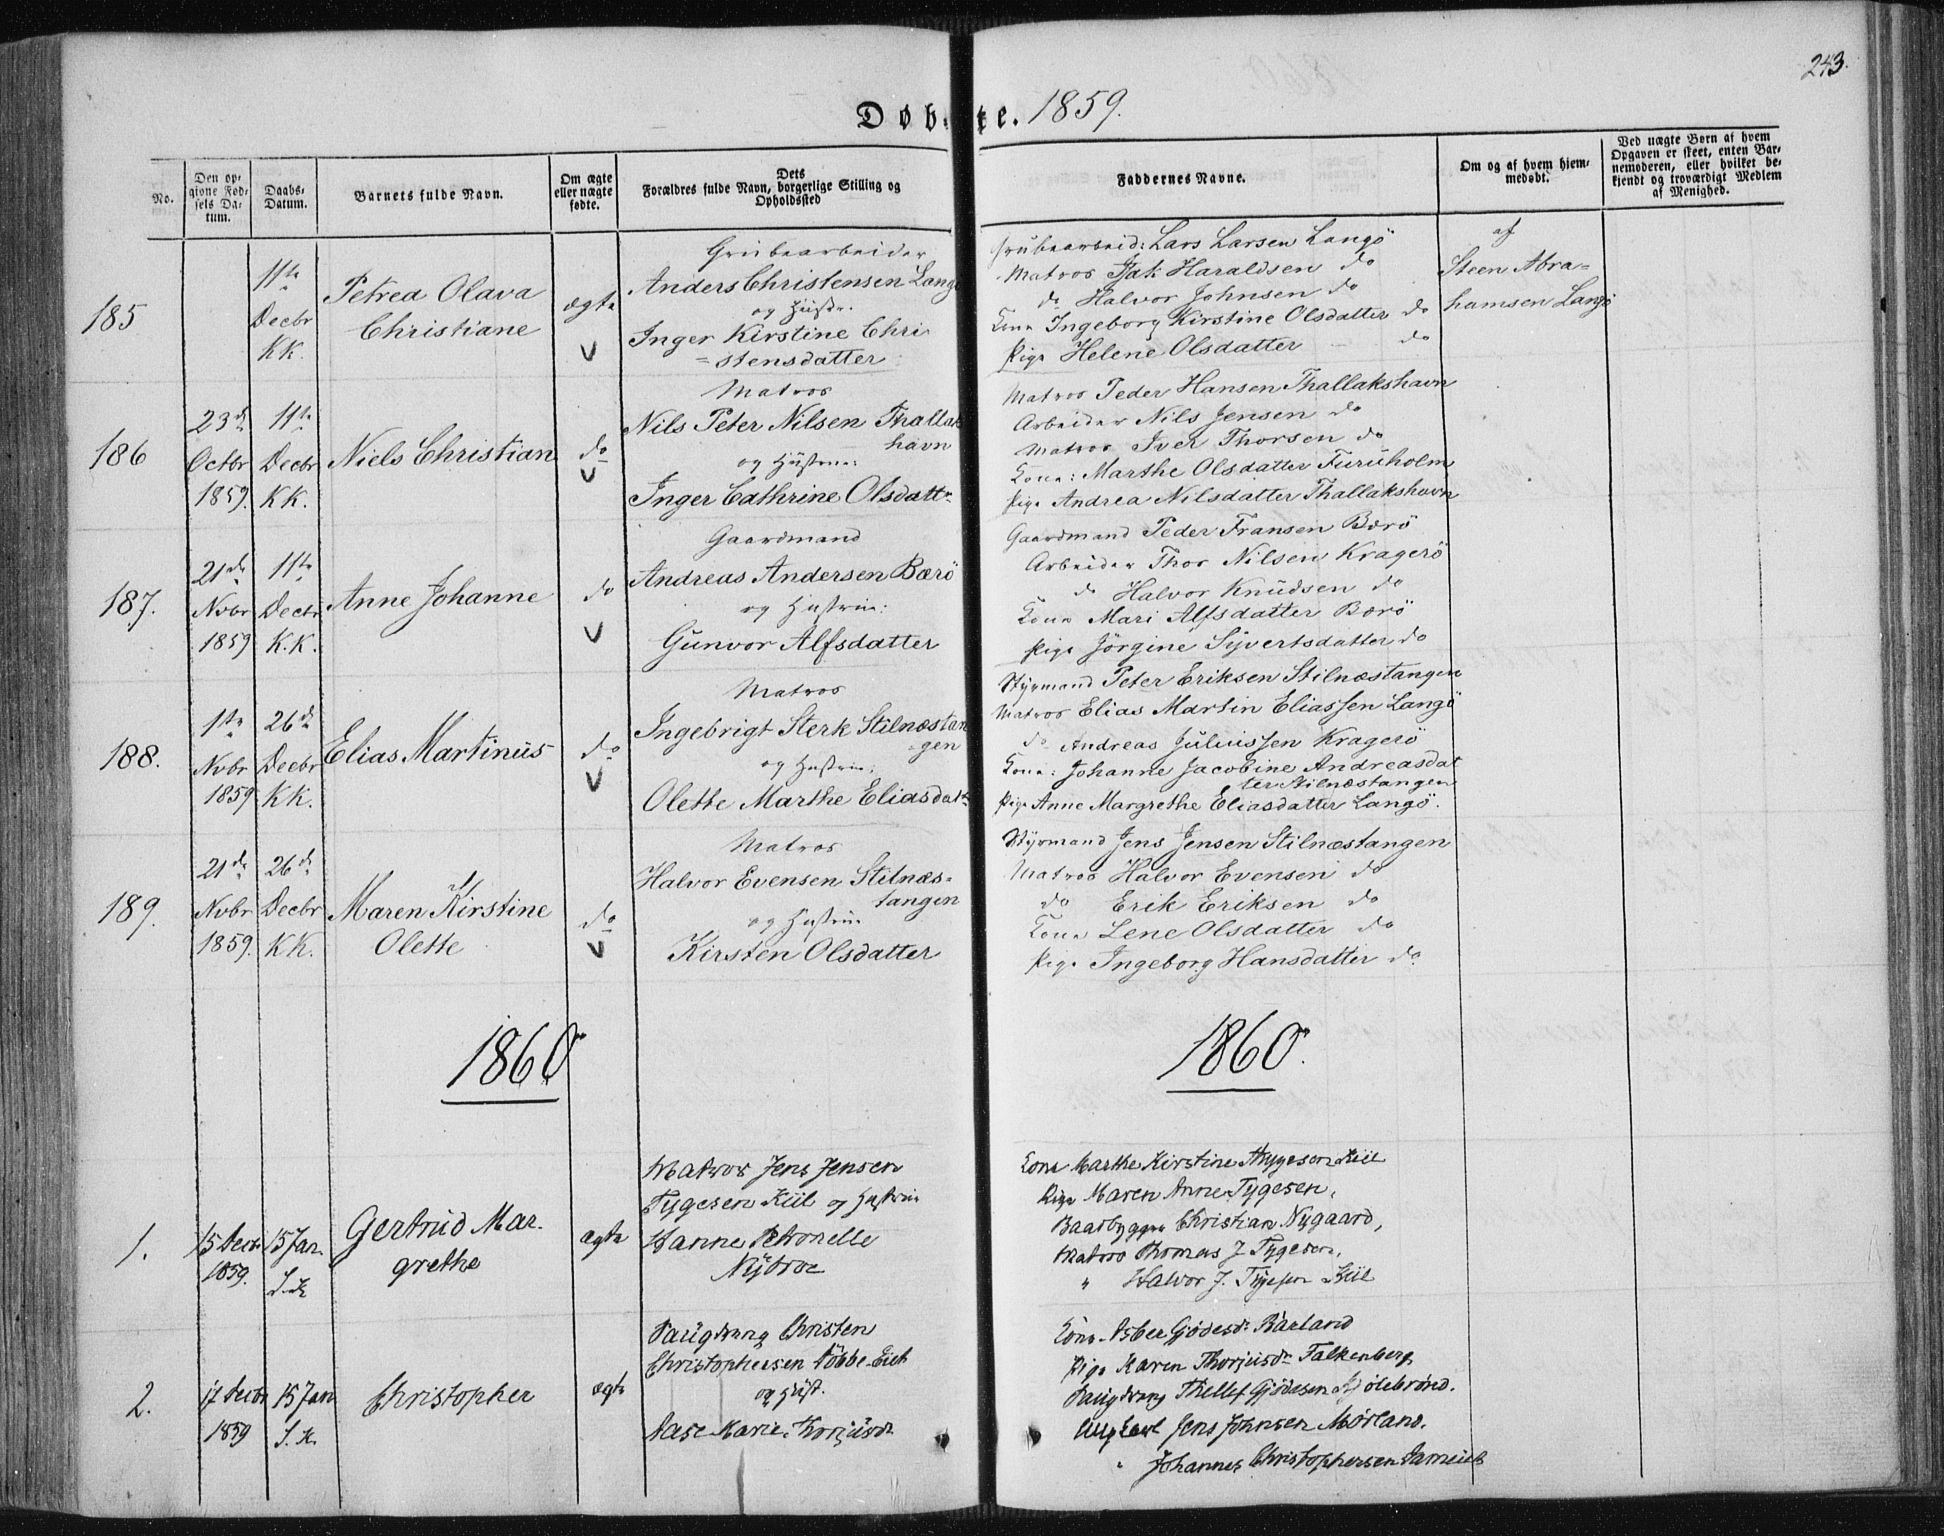 243.
Døbte. 1859.
No.
Den opgivne Fødsels Datum.
Daabs-Datum.
Barnets fulde Navn.
Om ægte eller uægte fødte.
Dets Forældres fulde Navn, borgerlige Stilling og Opholdssted
Faddernes Navne.
Om og af hvem hjemmedøbt.
Ved uægte Børn af hvem Opgaven er skeet, enten Barnemoderen, eller hvilket bekjendt og troværdigt Medlem af Menighed.
185
11te Decbr KK.
Petrea Olava
Christiane
ægte
Grubearbeider
Anders Christensen Langö
og Hustr.
Inger Kirstine Chri
=stensdatter
Grubearbeid: Lars Larsen Langö
Matros Isak Haraldsen do
do Halvor Johnsen do
Kone Ingeborg Kirstine Olsdatter do
Pige Helene Olsdatter do
af
Steen Abra=
hamsen Langö
186
23de Octbr 1859.
11te Decbr KK.
Niels Christian
do
Matros
Nils Peter Nilsen Thallaks
havn
og Hustrue:
Inger Cathrine Olsdattr
Matros Peder Hansen Thallakshavn
Arbeider Nils Jensen do
Matros Iver Thorsen do
Kone: Marthe Olsdatter Furuholm
Pige Andrea Nilsdatter Thallakshavn
187.
21de Novbr 1859
11te Decbr K.K.
Anne Johanne
do
Gaardmand
Andreas Andersen Bærö
og Hustrue:
Gunvor Alfsdatter
Gaardmand Peder Fransen Bærö
Arbeider Thor Nilsen Kragerö
do Halvor Knudsen do
Kone Mari Alfsdatter Bærö
Pige Jörgine Syvertsdatter do
188.
1ste Nvbr 1859
26de Decbr KK.
Elias Martinus
do
Matros
Ingebrigt Sterk Stilnæstan
=gen
og Hustrue:
Olette Marthe Eliasdatt
Styrmand Peter Eriksen Stilnæstangen
Matros Elias Martin Eliassen Langö
do Andreas Juliussen Kragerö
Kone: Johanne Jacobine Andreasdat
ter Stilnæstangen
Pige Anne Margrethe Eliasdatter Langö.
189.
21de Nvbr 1859.
26de Decbr KK.
Maren Kirstine
Olette
do
Matros
Halvor Evensen Stilnæs=
tangen
og Hustrue
Kirsten Olsdatter
Styrmand Jens Jensen Stilnæstangen
Matros Halvor Evensen do
do Erik Eriksen do
Kone Lene Olsdatter do
Pige Ingeborg Hansdatter do
1860
1860.
1.
15 Decbr 1859.
15 Jan. S.K
Gertrud Mar.
grethe
ægte
Matros Jens Jensen
Tygesen Kiil og Hustrue
Hanne Petronelle
Nybroe
Kone Marthe Kirstine Thygesen Kiil
Pige Maren Anne Tygesen,
Baadbygger Christian Nygaard,
Matros Thomas J. Tygesen,
" Halvor J. Tygesen Kiil
2.
17 Decbr 1859
15 Jan S.K.
Christopher
ægte
Christen
Christophersen
og Hust.
Aase Marie Thorjusdr
Kone Asber Gjödesdr Barland
Pige Karen Thorjusdr Falkenberg
Thellef Gjödesen
Ungkarl Jens Johnsen Mørland.
" Johannes Christophersen